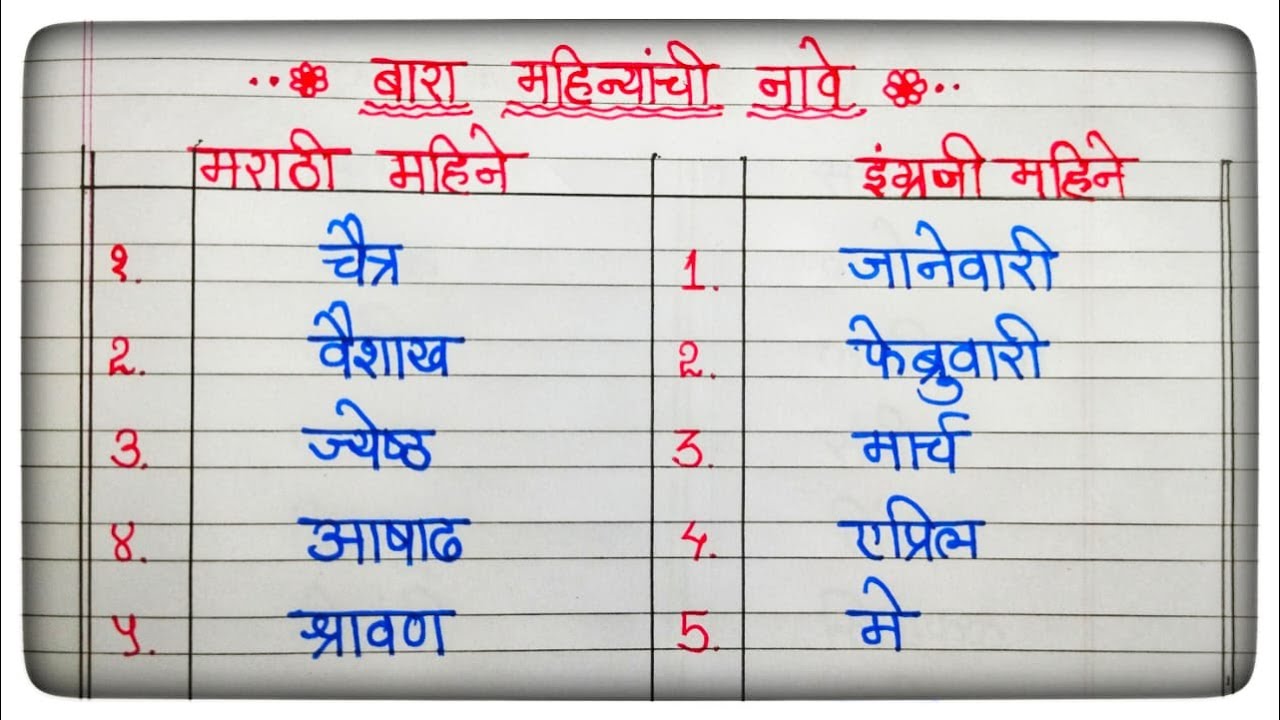 बारा महिन्यांची नावे
मराठी महिने इंग्रजी महिने
१. चैत्र 1. जानेवारी
२. वैशाख 2. फेब्रुवारी
३. ज्येष्ठ 3. मार्च
४. आषाढ 4. एप्रिल
५. श्रावण 5. मे